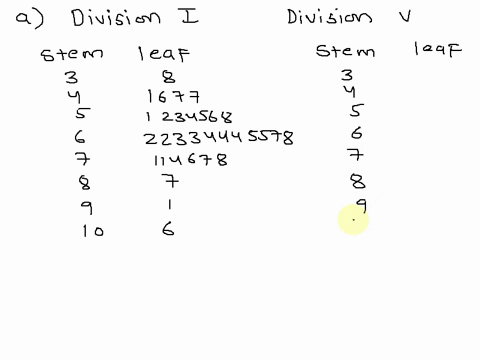 a) Division I Division V
Stem leaf Stem leaf
3 8 3
4 1677 4
5 1234568 5
6 223344445578 6
7 114678 7
8 7 8
9 1 9
10 6